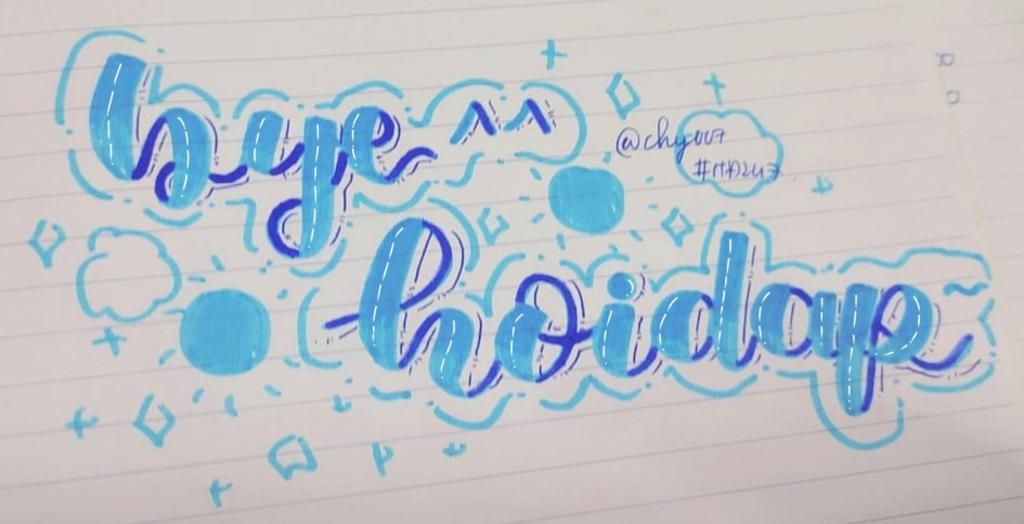 hye ^^
@chy007
#HD247
hoidap